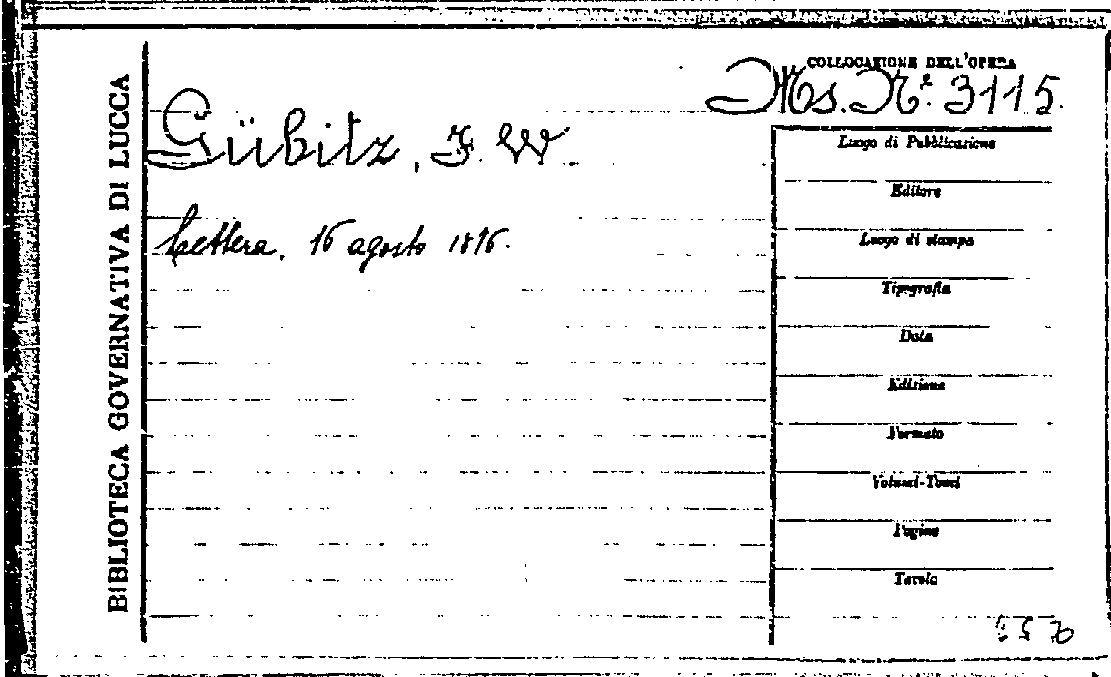 BIBLIOTECA GOVERNATIVA DI LUCCA
COLLOCAZIONE DELL'OPERA
Ms. N.º 3115.
Gübitz, F. W.
Lettera, 16 agosto
Luogo di Pubblicazione
Editore
Luogo di stampa
Tipografia
Data
Edizione
Formato
Volumi-Tomi
Pagine
Tavole